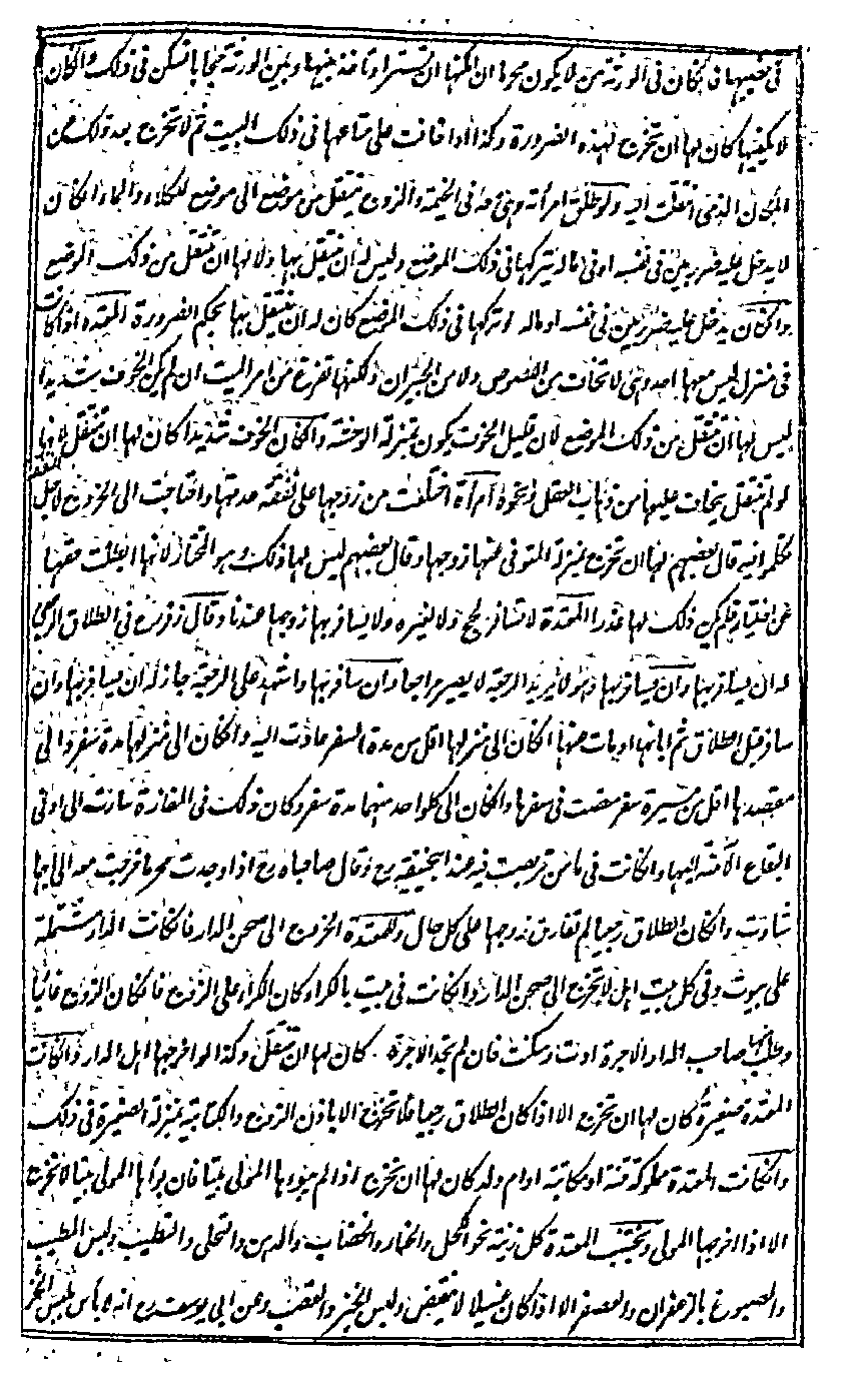 فى نصيبها فانكان فى الورثة من لا يكون محرما ان امكنها ان تستتر او تأخذ بينها وبين الورثة حجابا تسكن فى ذلك وانكان
لا يكفيها كان لها ان تخرج لهذه الضرورة وكذا اذا خافت على متاعها فى ذلك البيت ثم لا تخرج بعد ذلك من
المكان الذى انتقلت اليه ولو طلق امرأته وهى معه فى الخيمة والزوج ينتقل من موضع الى موضع للكلاء والماء انكان
لا يدخل عليه ضرر بين فى نفسه او فى ماله يتركها فى ذلك الموضع وليس له ان ينتقل بها ولا لها ان تنتقل من ذلك الموضع
وانكان يدخل عليه ضرر بين فى نفسه او ماله لو تركها فى ذلك الموضع كان له ان ينتقل بها بحكم الضرورة المعتدة اذا كانت
فى منزل ليس معها احد وهى لا تخاف من اللصوص ولا من الجيران ولكنها تفزع من امر الميت ان لم يكن الخوف شديدا
ليس لها ان تنتقل من ذلك الموضع لان قليل الخوف يكون بمنزلة الوحشة وانكان الخوف شديدا كان لها ان تنتقل لانها
لو لم تنتقل يخاف عليها من ذهاب العقل او نحوه امرأة اختلعت من زوجها على نفقة عدتها واحتاجت الى الخروج لاجل النفقة
تكلموا فيه قال بعضهم لها ان تخرج بمنزلة المتوفى عنها زوجها وقال بعضهم ليس لها ذلك وهو المختار لانها ابطلت حقها
عن اختيار فلم يكن ذلك لها عذرا المعتدة لا تسافر لحج ولا لغيره ولا يسافر بها زوجها عندنا وقال زفر رح فى الطلاق الرجعى
له ان يسافر بها وان يسافر بها وهو لا يريد الرجعة لا يصير مراجعا وان سافر بها واشهد على الرجعة جاز له ان يسافر بها وان
سافر قبل الطلاق ثم ابانها او مات عنها انكان الى منزلها اقل من مدة السفر عادت اليه وانكان الى منزلها مدة سفر والى
مقصدها اقل من مسيرة سفر مضت فى سفرها وانكان الى كل واحد منهما مدة سفر وكان ذلك فى المفازة سارت الى ادنى
البقاع الآمنة اليها وانكانت فى مأمن تربصت فيه عند ابيحنيفة رح وقال صاحباه رح اذا وجدت محرما خرجت معه الى ايها
شاءت وانكان الطلاق رجعيا لم تفارق زوجها على كل حال وللمعتدة الخروج الى صحن الدار فانكانت الدار مشتملة
على بيوت وفى كل بيت اهل لا تخرج الى صحن الدار وانكانت فى بيت بالكراء وكان الكراء على الزوج فانكان الزوج غائبا
وطلبها صاحب الدار بالاجرة ادت وسكنت فان لم تجد الاجرة كان لها ان تنتقل وكذا لو اخرجها اهل الدار وانكانت
المعتدة صغيرة كان لها ان تخرج الا اذا كان الطلاق رجعيا فلا تخرج الا باذن الزوج والكتابية بمنزلة الصغيرة فى ذلك
وانكانت المعتدة مملوكة قنة او مكاتبة او ام ولد كان لها ان تخرج اذا لم يبوءها المولى بيتا فان بوأها المولى بيتا لا تخرج
الا اذا اخرجها المولى وتجتنب المعتدة كل زينة نحو الكحل والخضاب والدهن والتحلى والتطيب ولبس المطيب
والمصبوغ بالزعفران والعصفر الا اذا كان غسيلا لا ينفض ولبس الخز والقصب وعن ابى يوسف رح انه لا بأس بلبس الخز